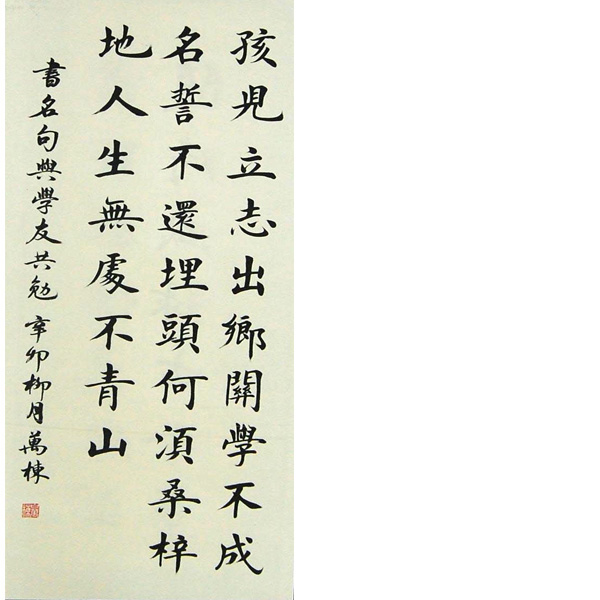 孩兒立志出鄉關學不成
名誓不還埋頭何湏桑梓
地人生無處不青山
書名句與學友共勉 辛卯柳月萬棟